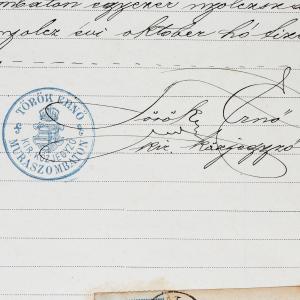 mbaton egyezer nyolczsz
nyolcz évi október hó
TÖRÖK ERNŐ
KIR. KÖZJEGYZŐ
MURASZOMBATON
Török Ernő
kir. közjegyző